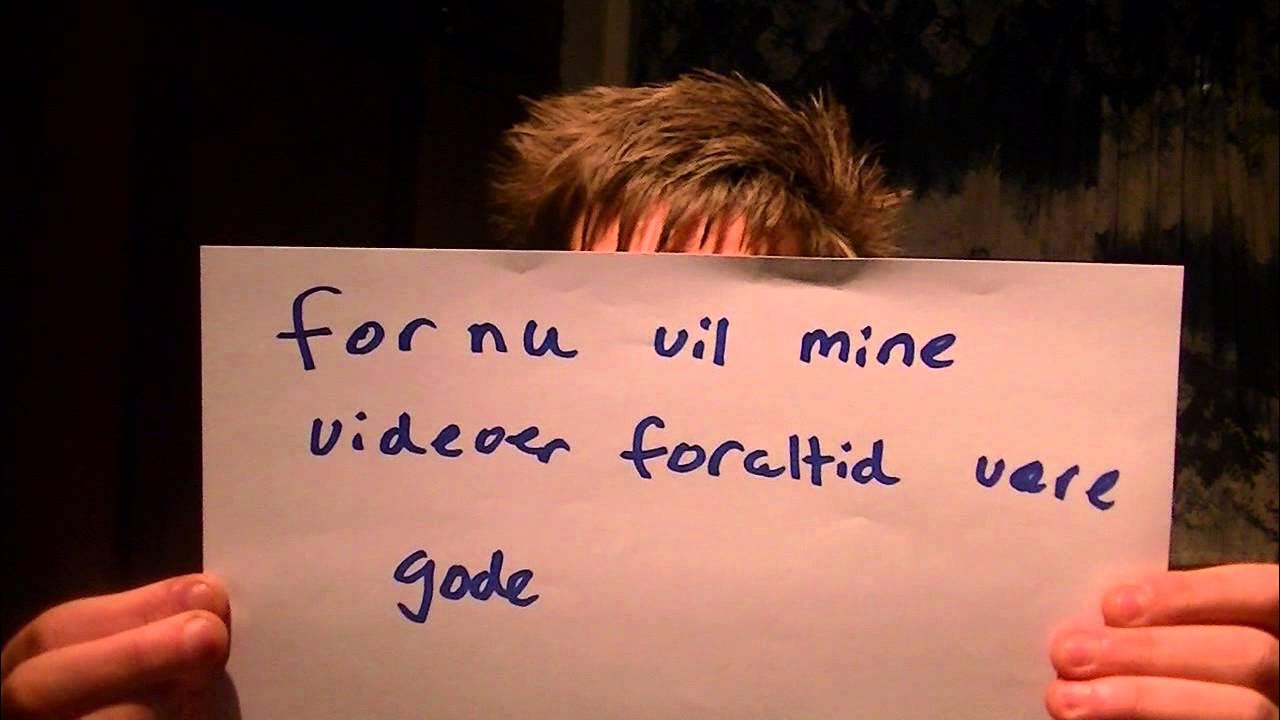 for nu vil mine
videoer foraltid vere
gode